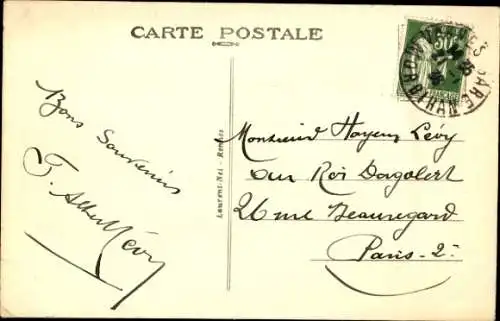 CARTE POSTALE
Bons Souvenirs
F. Albert Lévy
Laurent-Nel - Rennes
Monsieur Hayem Lévy
au Roi Dagobert
26 rue Beauregard
Paris - 2e
VANNES GARE
MORBIHAN
50c